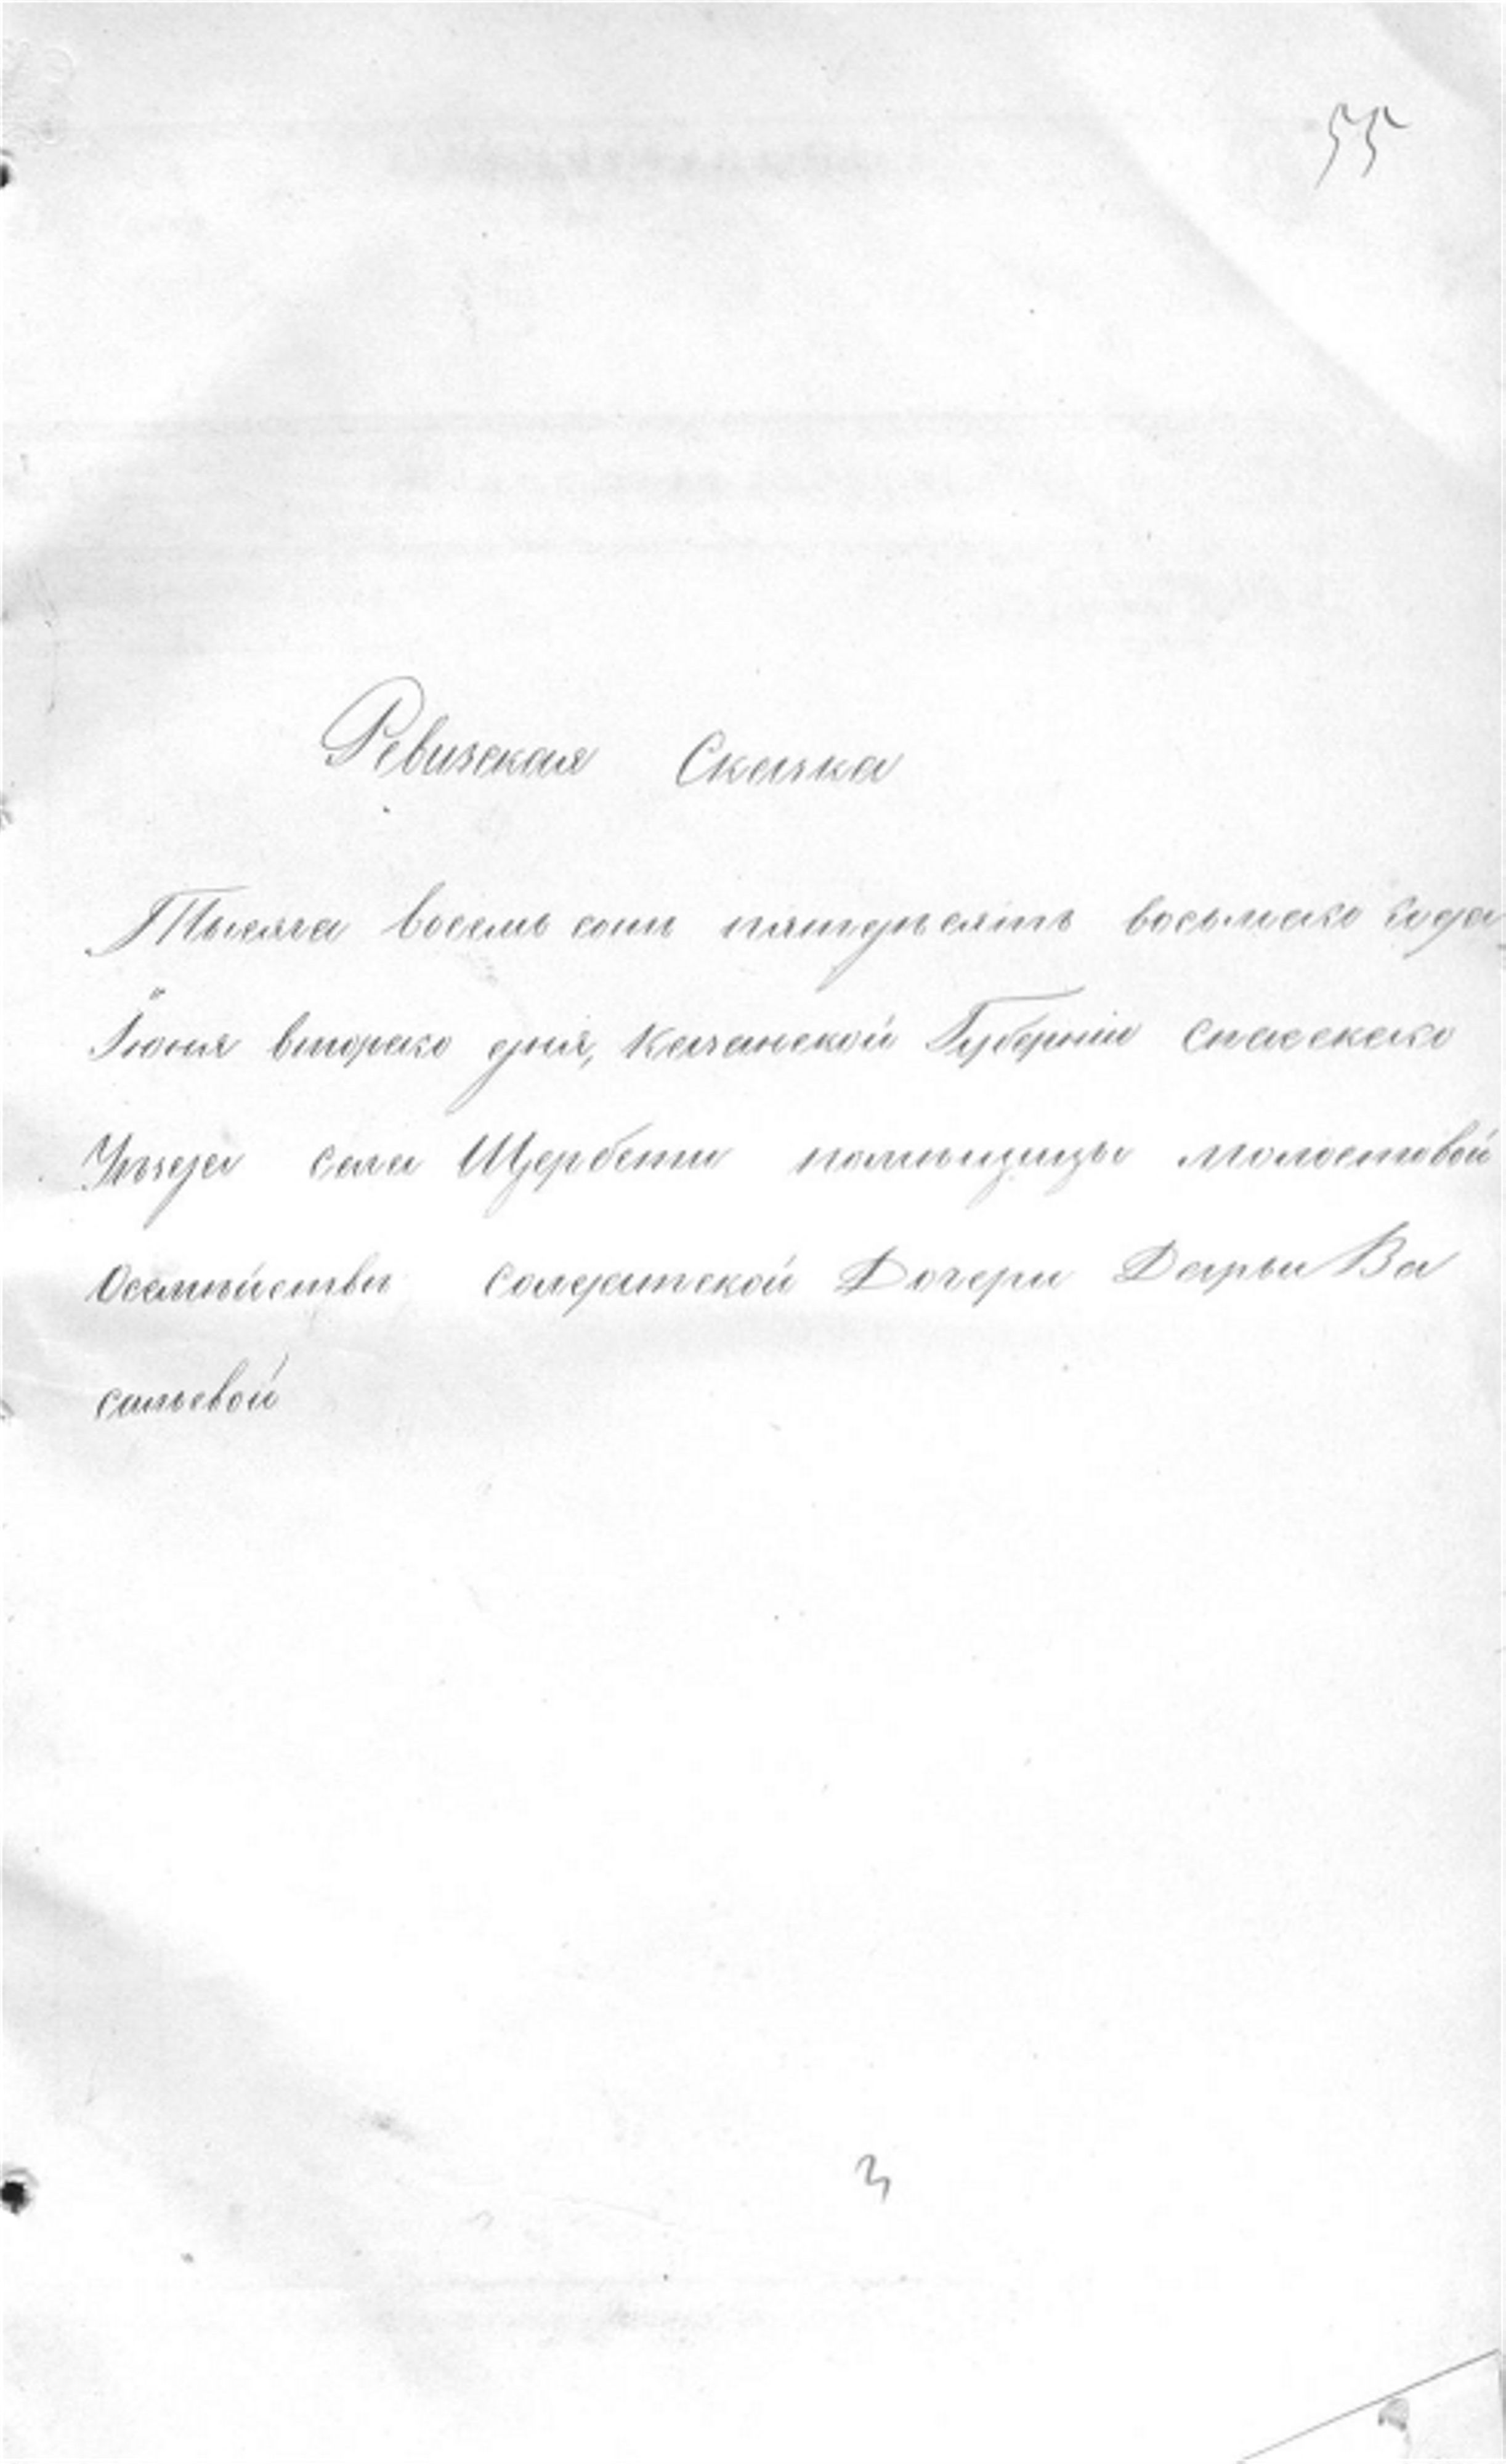 55
Ревизская Сказка
Тысяча восемь сотъ пятдѣсятъ восьмаго года
Іюня втораго дня, Казанской Губерніи Спасскаго
Уѣзда села Щербети помѣщицы Молоствовой
Осемѣйствѣ солдатской Дочери Дарьи Ва
сильевой
3